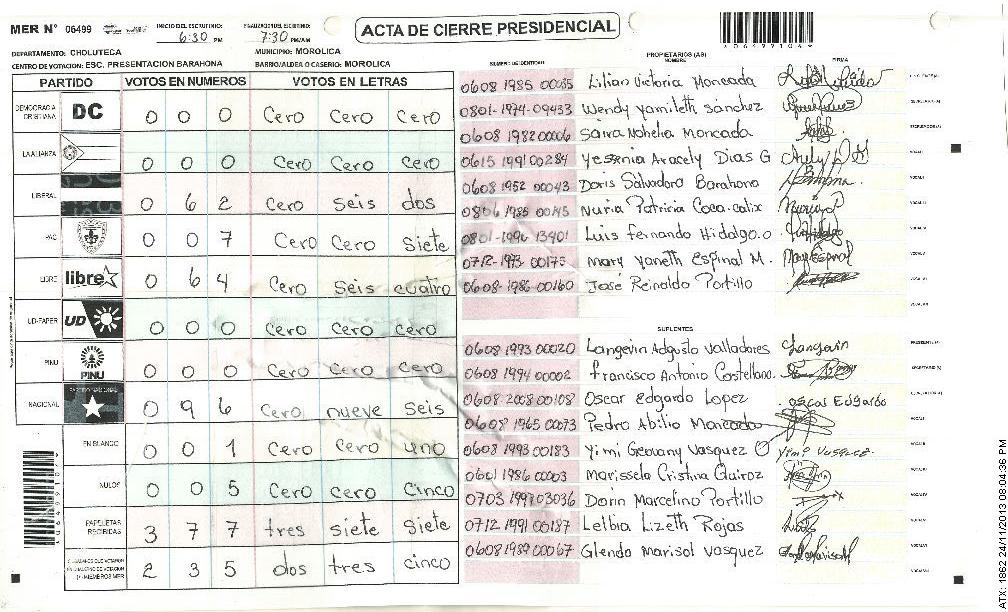 MER N° 06499
INICIO DEL ESCRUTINIO: 6:30 PM
FINALIZACION DEL ESCRUTINIO: 7:30 PM/AM
ACTA DE CIERRE PRESIDENCIAL
06499104
DEPARTAMENTO: CHOLUTECA
MUNICIPIO: MOROLICA
CENTRO DE VOTACION: ESC. PRESENTACION BARAHONA
BARRIO/ALDEA O CASERIO: MOROLICA
PARTIDO VOTOS EN NUMEROS VOTOS EN LETRAS
DEMOCRACIA CRISTIANA DC 0 0 0 Cero Cero Cero
LA ALIANZA 0 0 0 Cero Cero Cero
LIBERAL 0 6 2 Cero Seis dos
PAC 0 0 7 Cero Cero Siete
LIBRE libre 0 6 4 Cero Seis cuatro
UD-FAPER UD 0 0 0 Cero Cero Cero
PINU PINU 0 0 0 Cero Cero Cero
NACIONAL 0 9 6 Cero nueve Seis
EN BLANCO 0 0 1 Cero Cero uno
NULOS 0 0 5 Cero Cero Cinco
PAPELETAS RECIBIDAS 3 7 7 tres siete Siete
2 3 5 dos tres cinco
PROPIETARIOS (AS)
NOMBRE
FIRMA
0608 1985 00085 Lilian Victoria Moncada
0801-1974-09433 Wendy Yamileth Sánchez
0608 1982 00006 Saira Nohelia Moncada
0615 1991 00284 Yessenia Aracely Dias G
0608 1952 00043 Doris Salvadora Barahona
0806 1985 00145 Nuria Patricia Coca-calix
0801-1996 13401 Luis Fernando Hidalgo.o
0712-1973-00175 Mary Yaneth Espinal M.
0608-1986-00160 José Reinaldo Portillo
SUPLENTES
0608 1993 00020 Langerin Adgusto Valladares
0608 1994 00002 Francisco Antonio Castellano
0608 2008 00108 Oscar Edgardo Lopez oscar Edgardo
0608 1965 00073 Pedro Abilio Moncado
0608 1993 00183 Yimi Geovany Vasquez O Yimi Vasquez
0601 1986 00003 Marissela Cristina Quiroz
0703 1997 03036 Dorin Marcelino Portillo
0712 1991 00187 Lelbia Lizeth Rojas
0608 1989 00067 Glenda Marisol Vasquez
ATX: 1862 24/11/2013 08:04:36 PM